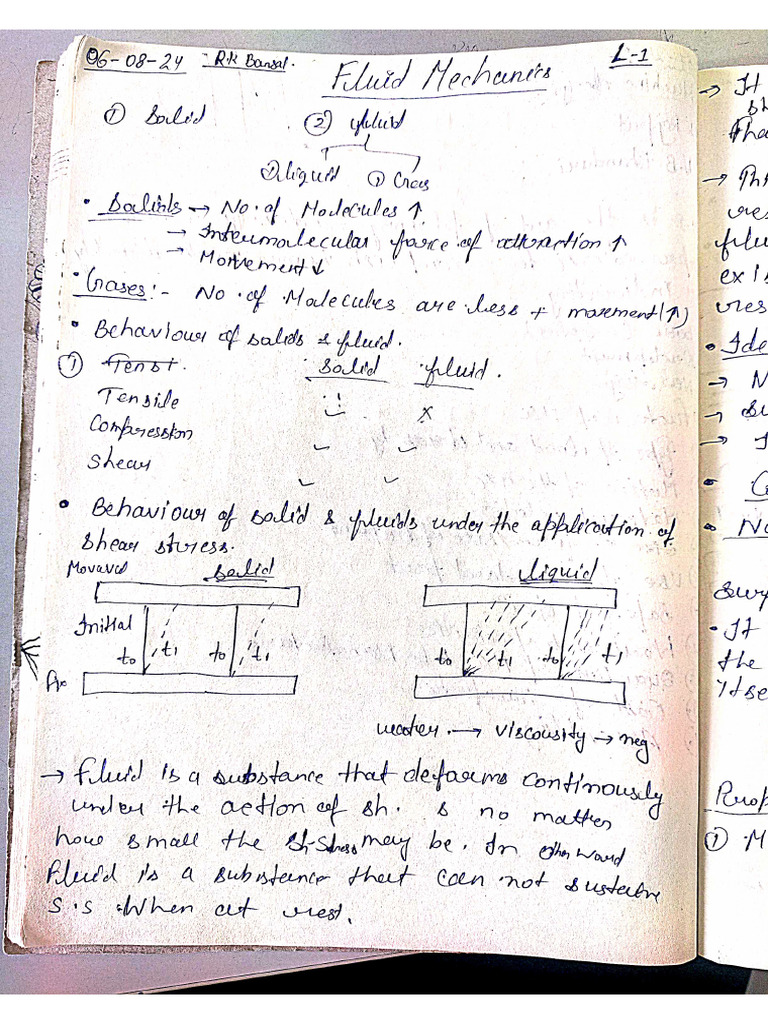 06-08-24 R.K Bansal. L-1
Fluid Mechanics
① Solid ② fluid
① liquid ① Gas
• Solids → No. of Molecules ↑
→ Intermolecular force of attraction ↑
→ Movement ↓
• Gases:- No. of Molecules are less + movement (↑)
• Behaviour of solids & fluid.
① Tenst. Solid fluid.
Tensile ✓ x
Compression ✓ ✓
Shear ✓ ✓
• Behaviour of solid & fluids under the application of
shear stress.
Solid liquid
Initial
t₀ t₁ t₀ t₁ t₀ t₁ t₀ t₁
water. → viscousity → neg
→ fluid is a substance that deforms continously
under the action of sh. s no matter
how small the sh-stress may be. In other word
fluid is a substance that can not sustain
s.s when at rest.
→ It
sh
tha
→ Thr
res
flu
exis
res
• Ide
→ N
→ Su
→ I
• C
• No
surf
• It
the
itse
Prop
① M